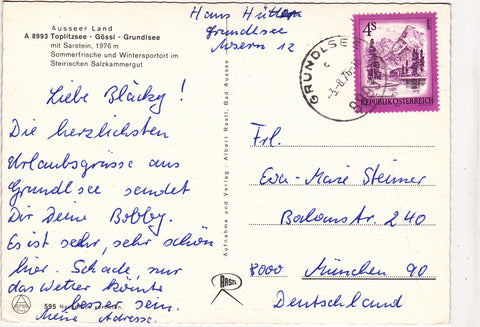 Ausseer Land
A 8993 Toplitzsee - Gössl - Grundlsee
mit Sarstein, 1976 m
Sommerfrische und Wintersportort im
Steirischen Salzkammergut
Hans
Grundlsee
12
GRUNDLSEE
-3.-8.76
4S
REPUBLIK ÖSTERREICH
Liebe Bläcky!
Die herzlichsten
Urlaubsgrüsse aus
Grundlsee sendet
Dir Deine Bobby.
Es ist sehr, sehr schön
hier. Schade, nur
das Wetter könnte
besser sein.
Meine Adresse.
Aufnahme und Verlag: Albert Rastl, Bad Aussee
RASTL
595
Frl.
Eva-Marie Steimer
Balanstr. 240
8000 München 90
Deutschland